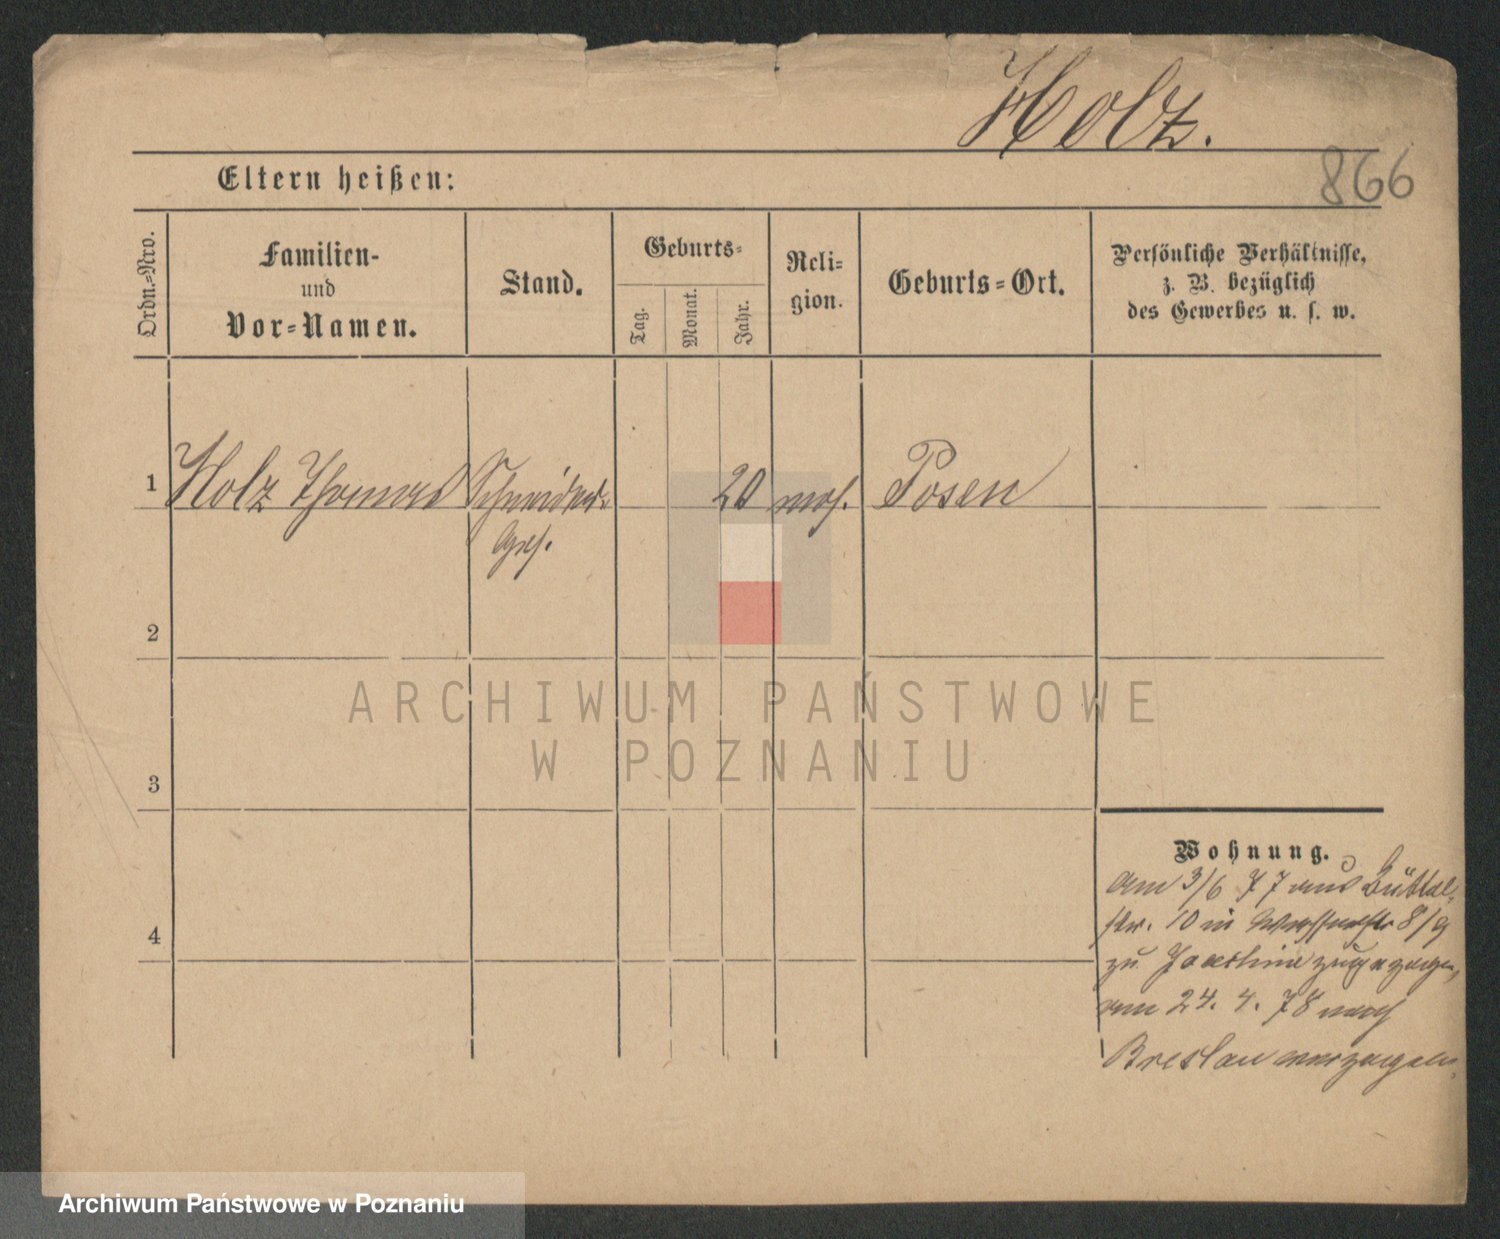 Holz.
866
Eltern heißen:
Ordn.-Nro.
Familien-
und
Vor-Namen.
Stand.
Geburts-
Tag.
Monat.
Jahr.
Reli-
gion.
Geburts-Ort.
Persönliche Verhältnisse,
z. B. bezüglich
des Gewerbes u. s. w.
1 Holz Thomas Schneider- 20 Posen
Ges.
2
ARCHIWUM PAŃSTWOWE
W POZNANIU
3
Wohnung.
am 3/6 77 aus Büttel-
str. 10 in 8/9
zu zugezogen,
am 24. 4. 78 nach
Breslau verzogen.
4
Archiwum Państwowe w Poznaniu